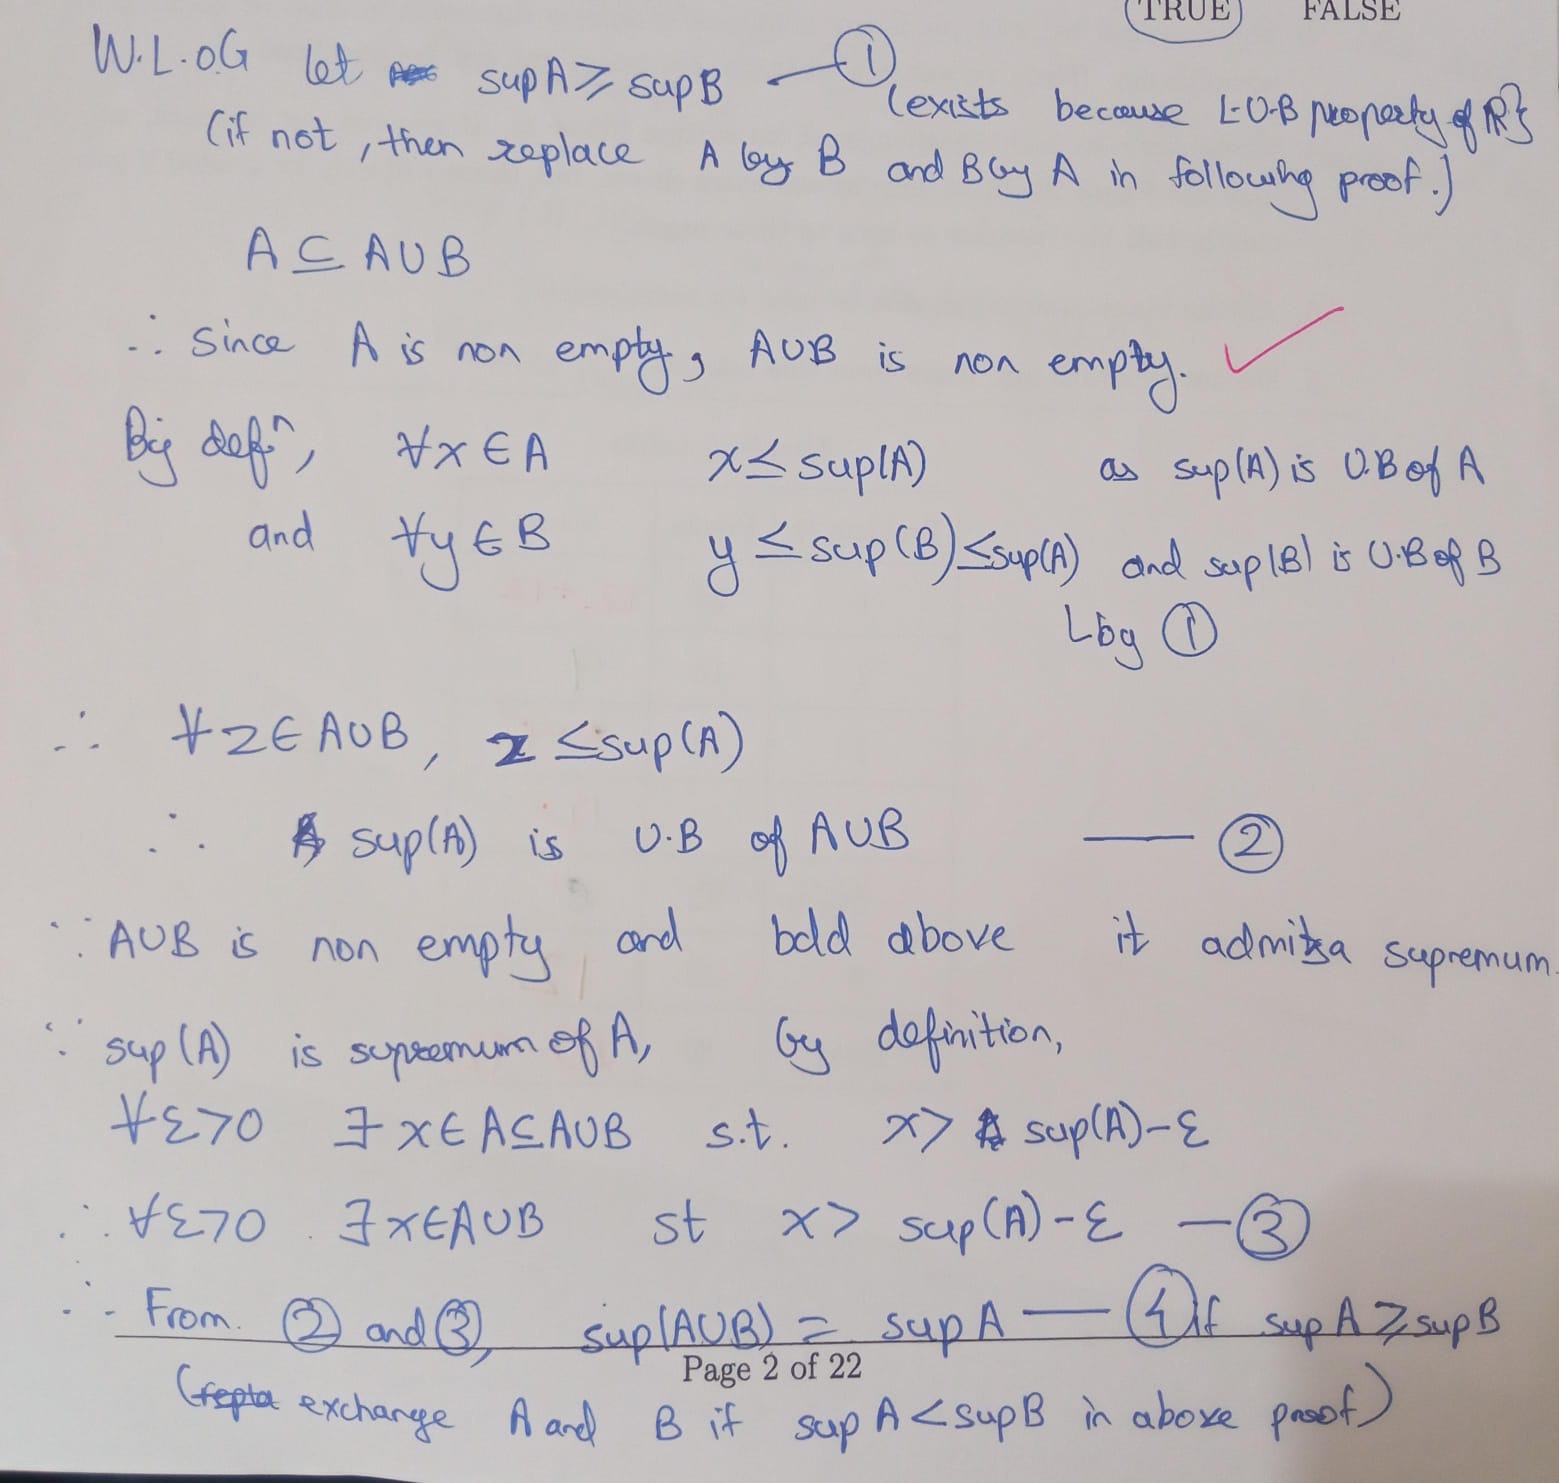 TRUE FALSE
W.L.O.G let sup A ≥ sup B — ①
(exists because L.U.B property of ℝ}
(if not, then replace A by B and B by A in following proof.)
A ⊆ A∪B
∴ Since A is non empty, A∪B is non empty.
By defⁿ, ∀x∈A x ≤ sup(A) as sup(A) is U.B of A
and ∀y∈B y ≤ sup(B) ≤ sup(A) and sup(B) is U.B of B
by ①
∴ ∀z∈A∪B, z ≤ sup(A)
∴ sup(A) is U.B of A∪B — ②
∵ A∪B is non empty and bdd above it admits a supremum.
∵ sup(A) is supremum of A, by definition,
∀ε>0 ∃x∈A⊆A∪B s.t. x > sup(A)-ε
∴ ∀ε>0 ∃x∈A∪B st x > sup(A)-ε — ③
∴ From ② and ③, sup(A∪B) = sup A — ④ if sup A ≥ sup B
Page 2 of 22
(exchange A and B if sup A < sup B in above proof)